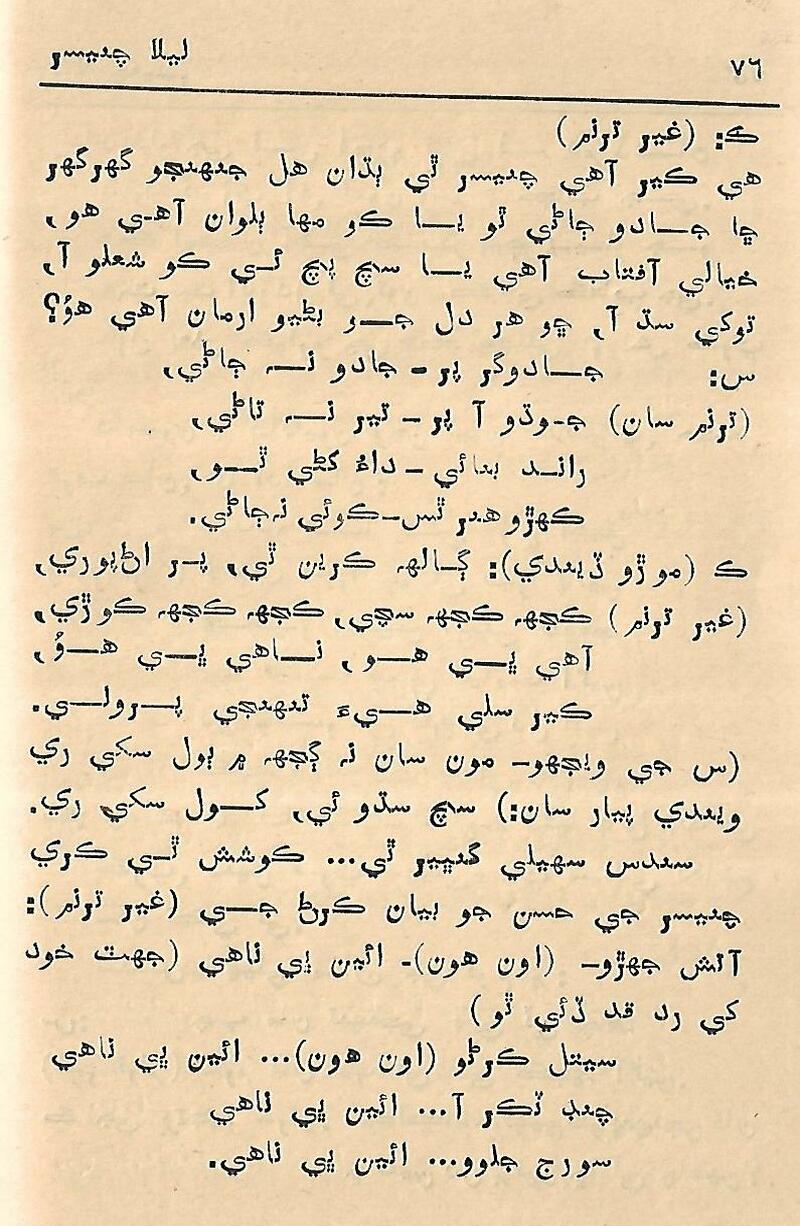 ٧٦ ليلا چنيسر
ڪ: (غير ترنم)
هي ڪير آهي چنيسر ٿي ٻڌان هل جنهنجو گهرگهر
ڇا جادو ڄاڻي ٿو يا ڪو مها ٻلوان آهي هو،
خيالي آفتاب آهي يا سچ پچ ئي ڪو شعلو آ،
توکي سڌ آ، ڇو هر دل جو بڻيو ارمان آهي هوُ؟
س: جادوگر پر – جادو نہ ڄاڻي،
(ترنم سان) جوڌو آ پر – تير نہ تاڻي،
راند بنائي – داءُ کڻي ٿو،
ڪهڙو هنر ٿس – ڪوئي نہ ڄاڻي.
ڪ (موڙو ڏيندي): ڳالهہ ڪرين ٿي، پر اڻپوري،
(غير ترنم) ڪجهہ ڪجهہ سچي، ڪجهہ ڪجهہ ڪوڙي،
آهي ڀي هو، ناهي ڀي هوُ،
ڪير سلي هيءَ تنهنجي پرولي.
(س جي ويجهو– مون سان نہ ڳجهہ ۾ ٻول سکي ري
ويندي پيار سان:) سچ سڌو ئي، کول سکي ري.
سندس سهيلي گنڀير ٿي... ڪوشش ٿي ڪري
چنيسر جي حسن جو بيان ڪرڻ جي (غير ترنم):
آتش جهڙو– (اون هون)- ائين ڀي ناهي (جهٽ خود
کي رد قد ڏئي ٿو)
سيتل ڪرڻو (اون هون)... ائين ڀي ناهي
چنڊ ٽڪر آ... ائين ڀي ناهي
سورج جلوو... ائين ڀي ناهي.